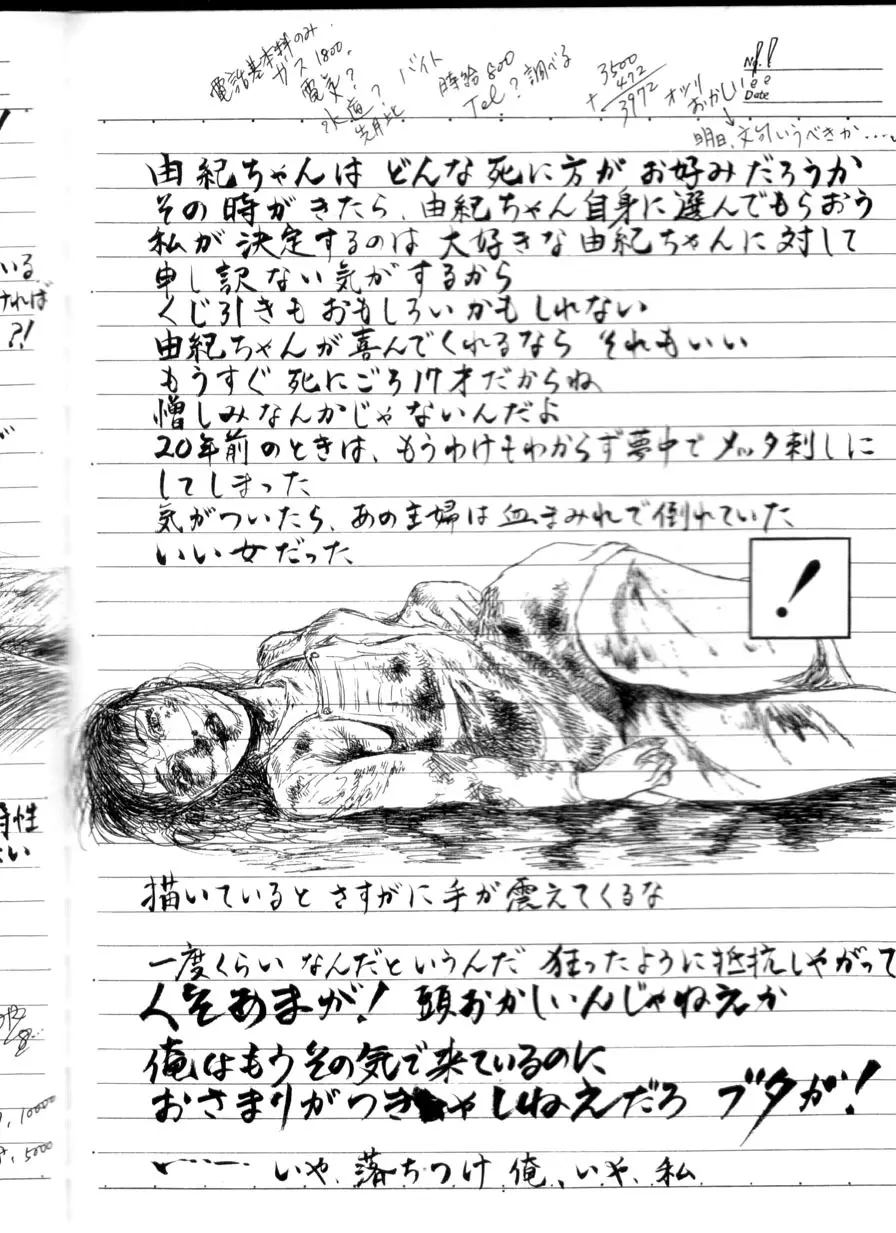 電話基本料のみ
ガス1800.
電気?
水道?
先月比
バイト
時給800
Tel?調べる
3500
472
+
3972
オツリ
おかしい!!
No.
Date
明日、文句いうべきか…
由紀ちゃんは どんな死に方が お好みだろうか
その時がきたら、由紀ちゃん自身に選んでもらおう
私が決定するのは 大好きな由紀ちゃんに対して
申し訳ない気がするから
くじ引きも おもしろいかもしれない
由紀ちゃんが喜んでくれるなら それもいい
もうすぐ 死にごろ17才だからね
憎しみなんかじゃないんだよ
20年前のときは、もうわけもわからず夢中で メッタ刺しに
してしまった
気がついたら、あの主婦は血まみれで倒れていた
いい女だった
!
描いていると さすがに手が震えてくるな
一度くらい なんだというんだ 狂ったように抵抗しやがって
人をあまが! 頭おかしいんじゃねえか
俺はもうその気で来ているのに
おさまりがつきゃしねえだろ ブタが!
……いや、落ちつけ 俺、いや、私
いる
ければ
?!
特性
10000
5000